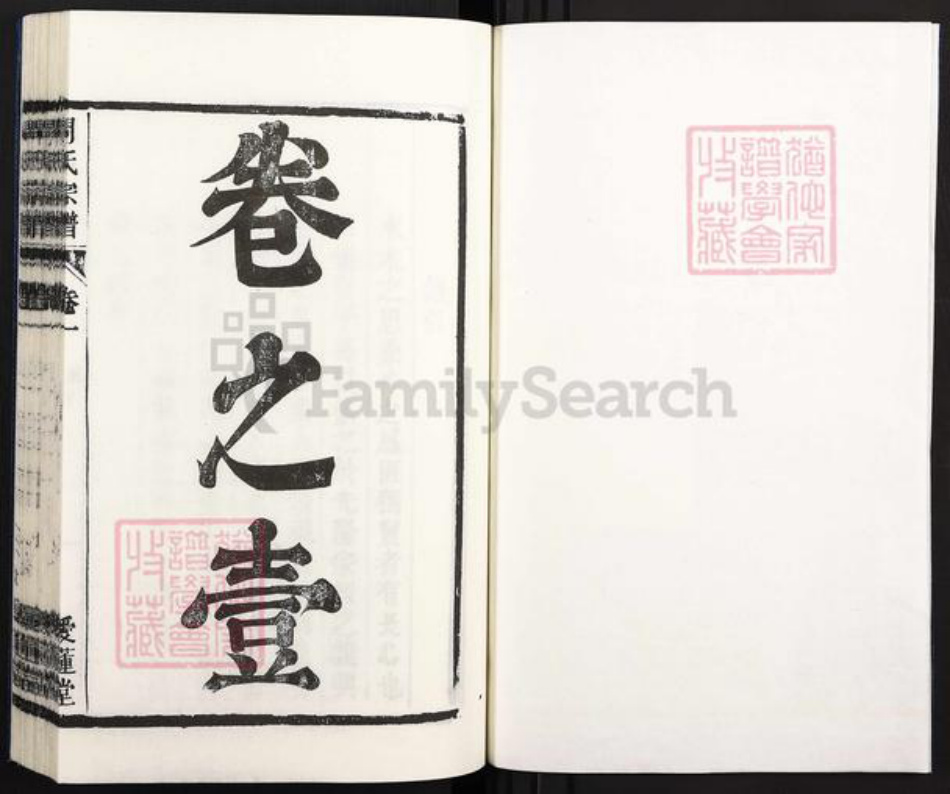 卷之壹
周氏宗譜
卷一
愛蓮堂
猶他家
譜學會
收藏
猶他家
譜學會
收藏
FamilySearch